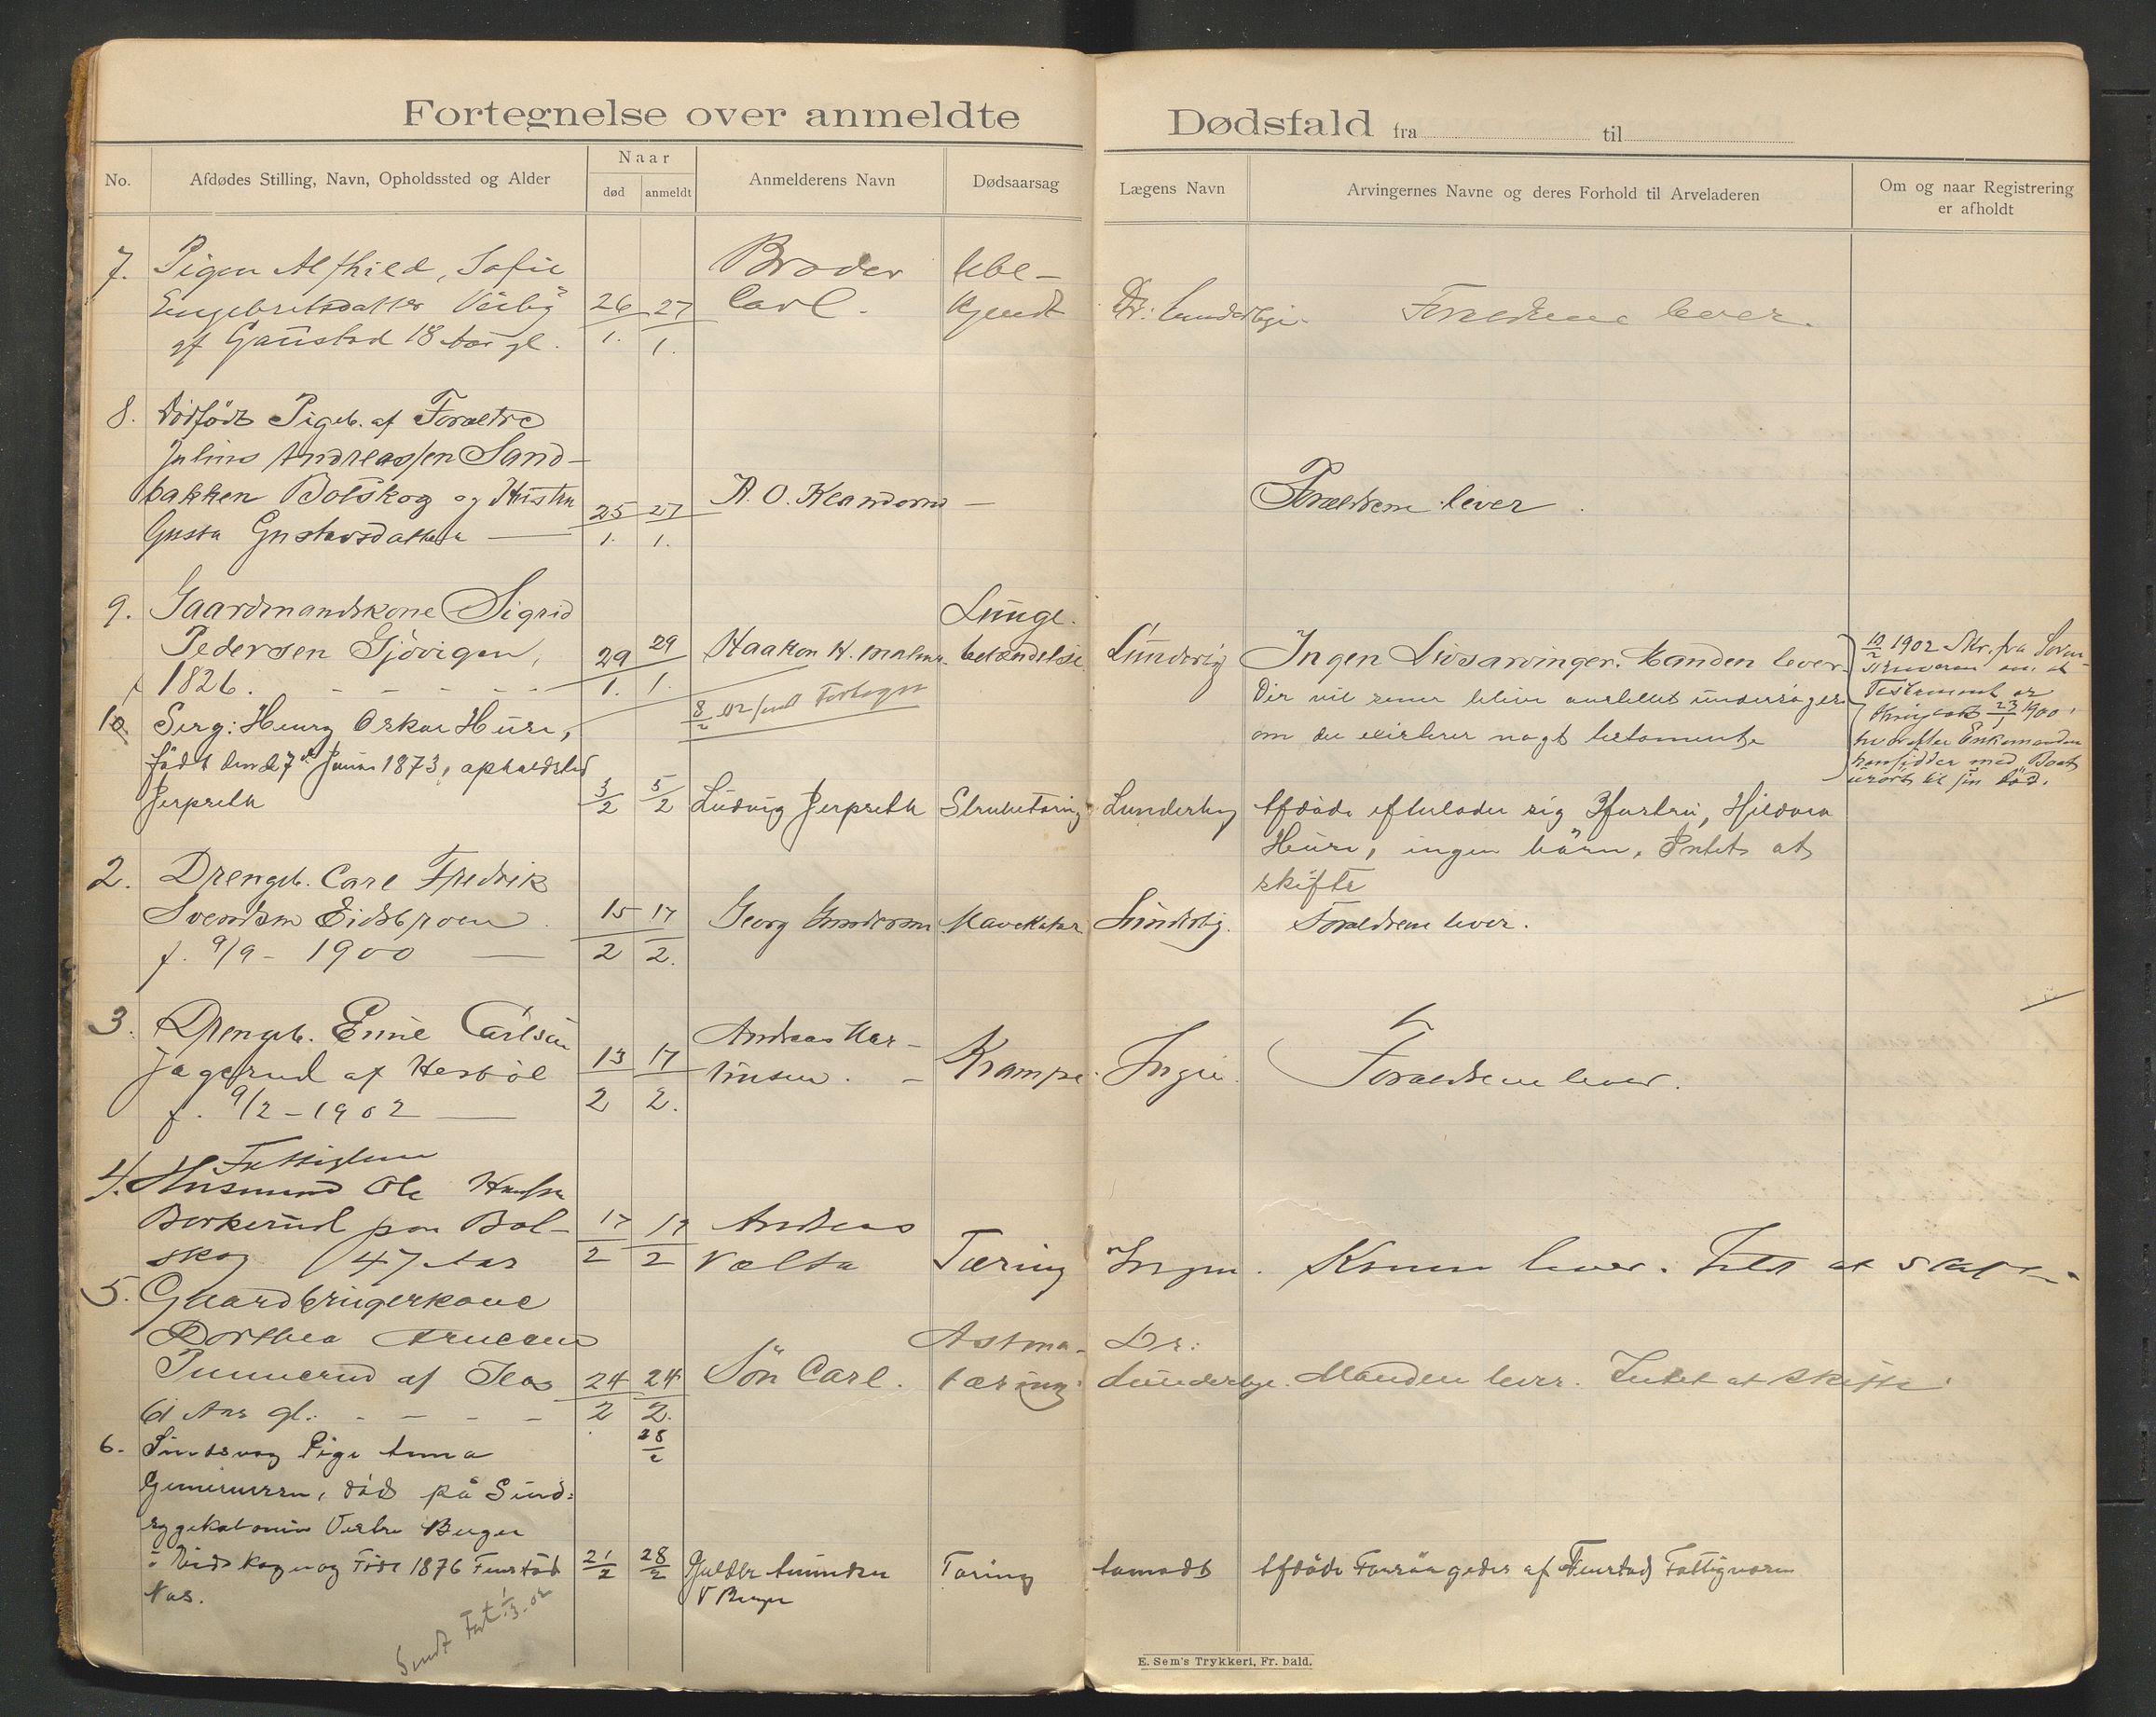 Fortegnelse over anmeldte Dødsfald fra til
No.
Afdødes Stilling, Navn, Opholdssted og Alder
Naar
død
anmeldt
Anmelderens Navn
Dødsaarsag
Lægens Navn
Arvingernes Navne og deres Forhold til Arveladeren
Om og naar Registrering
er afholdt
7. Pigen Alfhild, Sofie
Engebretsdatter
af Gaustad 18 Aar gl.
26/1. 27/1.
Broder
Carl.
Ube-
kjendt
Dr: Lunderbye.
Forældrene lever.
8. Dödfödt Pigeb. af Forældre
Julius Andreassen Sand-
bakken Botskog og Hustru
Gusta Gustavsdatter
25/1. 27/1.
A. O. —
Forældrene lever.
9. Gaardmandskone Sigrid
Pedersen Gjövigen,
1826.
29/1. 29/1.
Haakon H.
8/2 02
Lunge-
betændelse
Lunderby
Ingen Livsarvinger. Manden lever
Der vil senere blive anstillet undersögelse
om der existerer nogt testamente
10/2 1902 Skr. fra Soren-
skriveren om at
Testament er
23/1 1900,
hvorefter Enkemanden
hensidder med Boet
urört til sin Död.
10. Serg: Henry Oskar Hure,
födt den 7de Juni 1873, opholdsted
Jerpseth
3/2 5/2
Ludvig Jerpseth
Strubetæring
Lunderby
Afdöde efterlader sig Hustru,
Hure, ingen börn. Intet at
skifte
2. Drengeb. Carl Fredrik
Svendsen Eidsbroen
f. 9/9 - 1900
15/2 17/2.
Georg Gundersen
Mavekatar
Lunderby.
Forældrene lever.
3. Drengeb. Enne Carlsen
Jagerud af Herböl
f. 9/2 - 1902
13/2 17/2.
Andreas Mar-
tinsen.
Krampe.
Ingen.
Forældrene lever.
4. Fattiglem
Husmand Ole Hansen
Borkerud paa Bot-
skog 47 Aar
17/2 19/2
Andreas
Tæring
Ingen.
Konen lever. Intet at skifte.
5. Gaardbrugerkone
Dorthea Arnesen
af Flas
61 Aar gl.
24/2 24/2.
Sön Carl.
Astma-
tæring.
Dr:
Lunderbye.
Manden lever. Intet at skifte.
28/2
6. Sindssvag Pige Anna
död på Sind-
sygekolonien Vestre Berger
i Nidskogen og Född 1876
Nas.
21/2 28/2
Amundsen
V Berger
Tæring
Aamodt
Afdöde Forsörgedes af Fattigvæsen
Sendt 1/3-02
E. Sem's Trykkeri, Fr. hald.